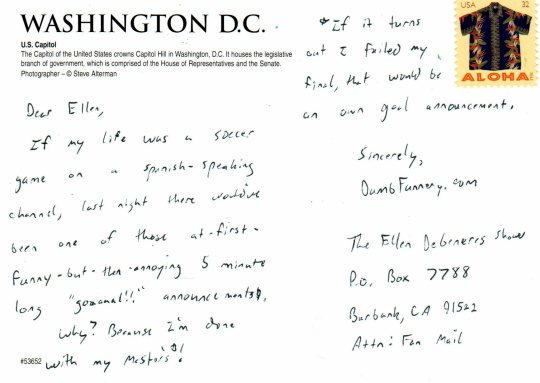 WASHINGTON D.C.
U.S. Capitol
The Capitol of the United States crowns Capitol Hill in Washington, D.C. It houses the legislative
branch of government, which is comprised of the House of Representatives and the Senate.
Photographer – © Steve Alterman
Dear Ellen,
If my life was a soccer
game on a spanish-speaking
channel, last night there would've
been one of those at-first-
funny-but-then-annoying 5 minute
long "gooooal!!" announcements*,
Why? Because I'm done
with my Masters*!
#53652
*If it turns
out I failed my
final, that would be
an own goal announcement.
Sincerely,
DumbFunnery.com
The Ellen Degeneres Show
P.O. Box 7788
Burbank, CA 91522
Attn: Fan Mail
USA 32
ALOHA